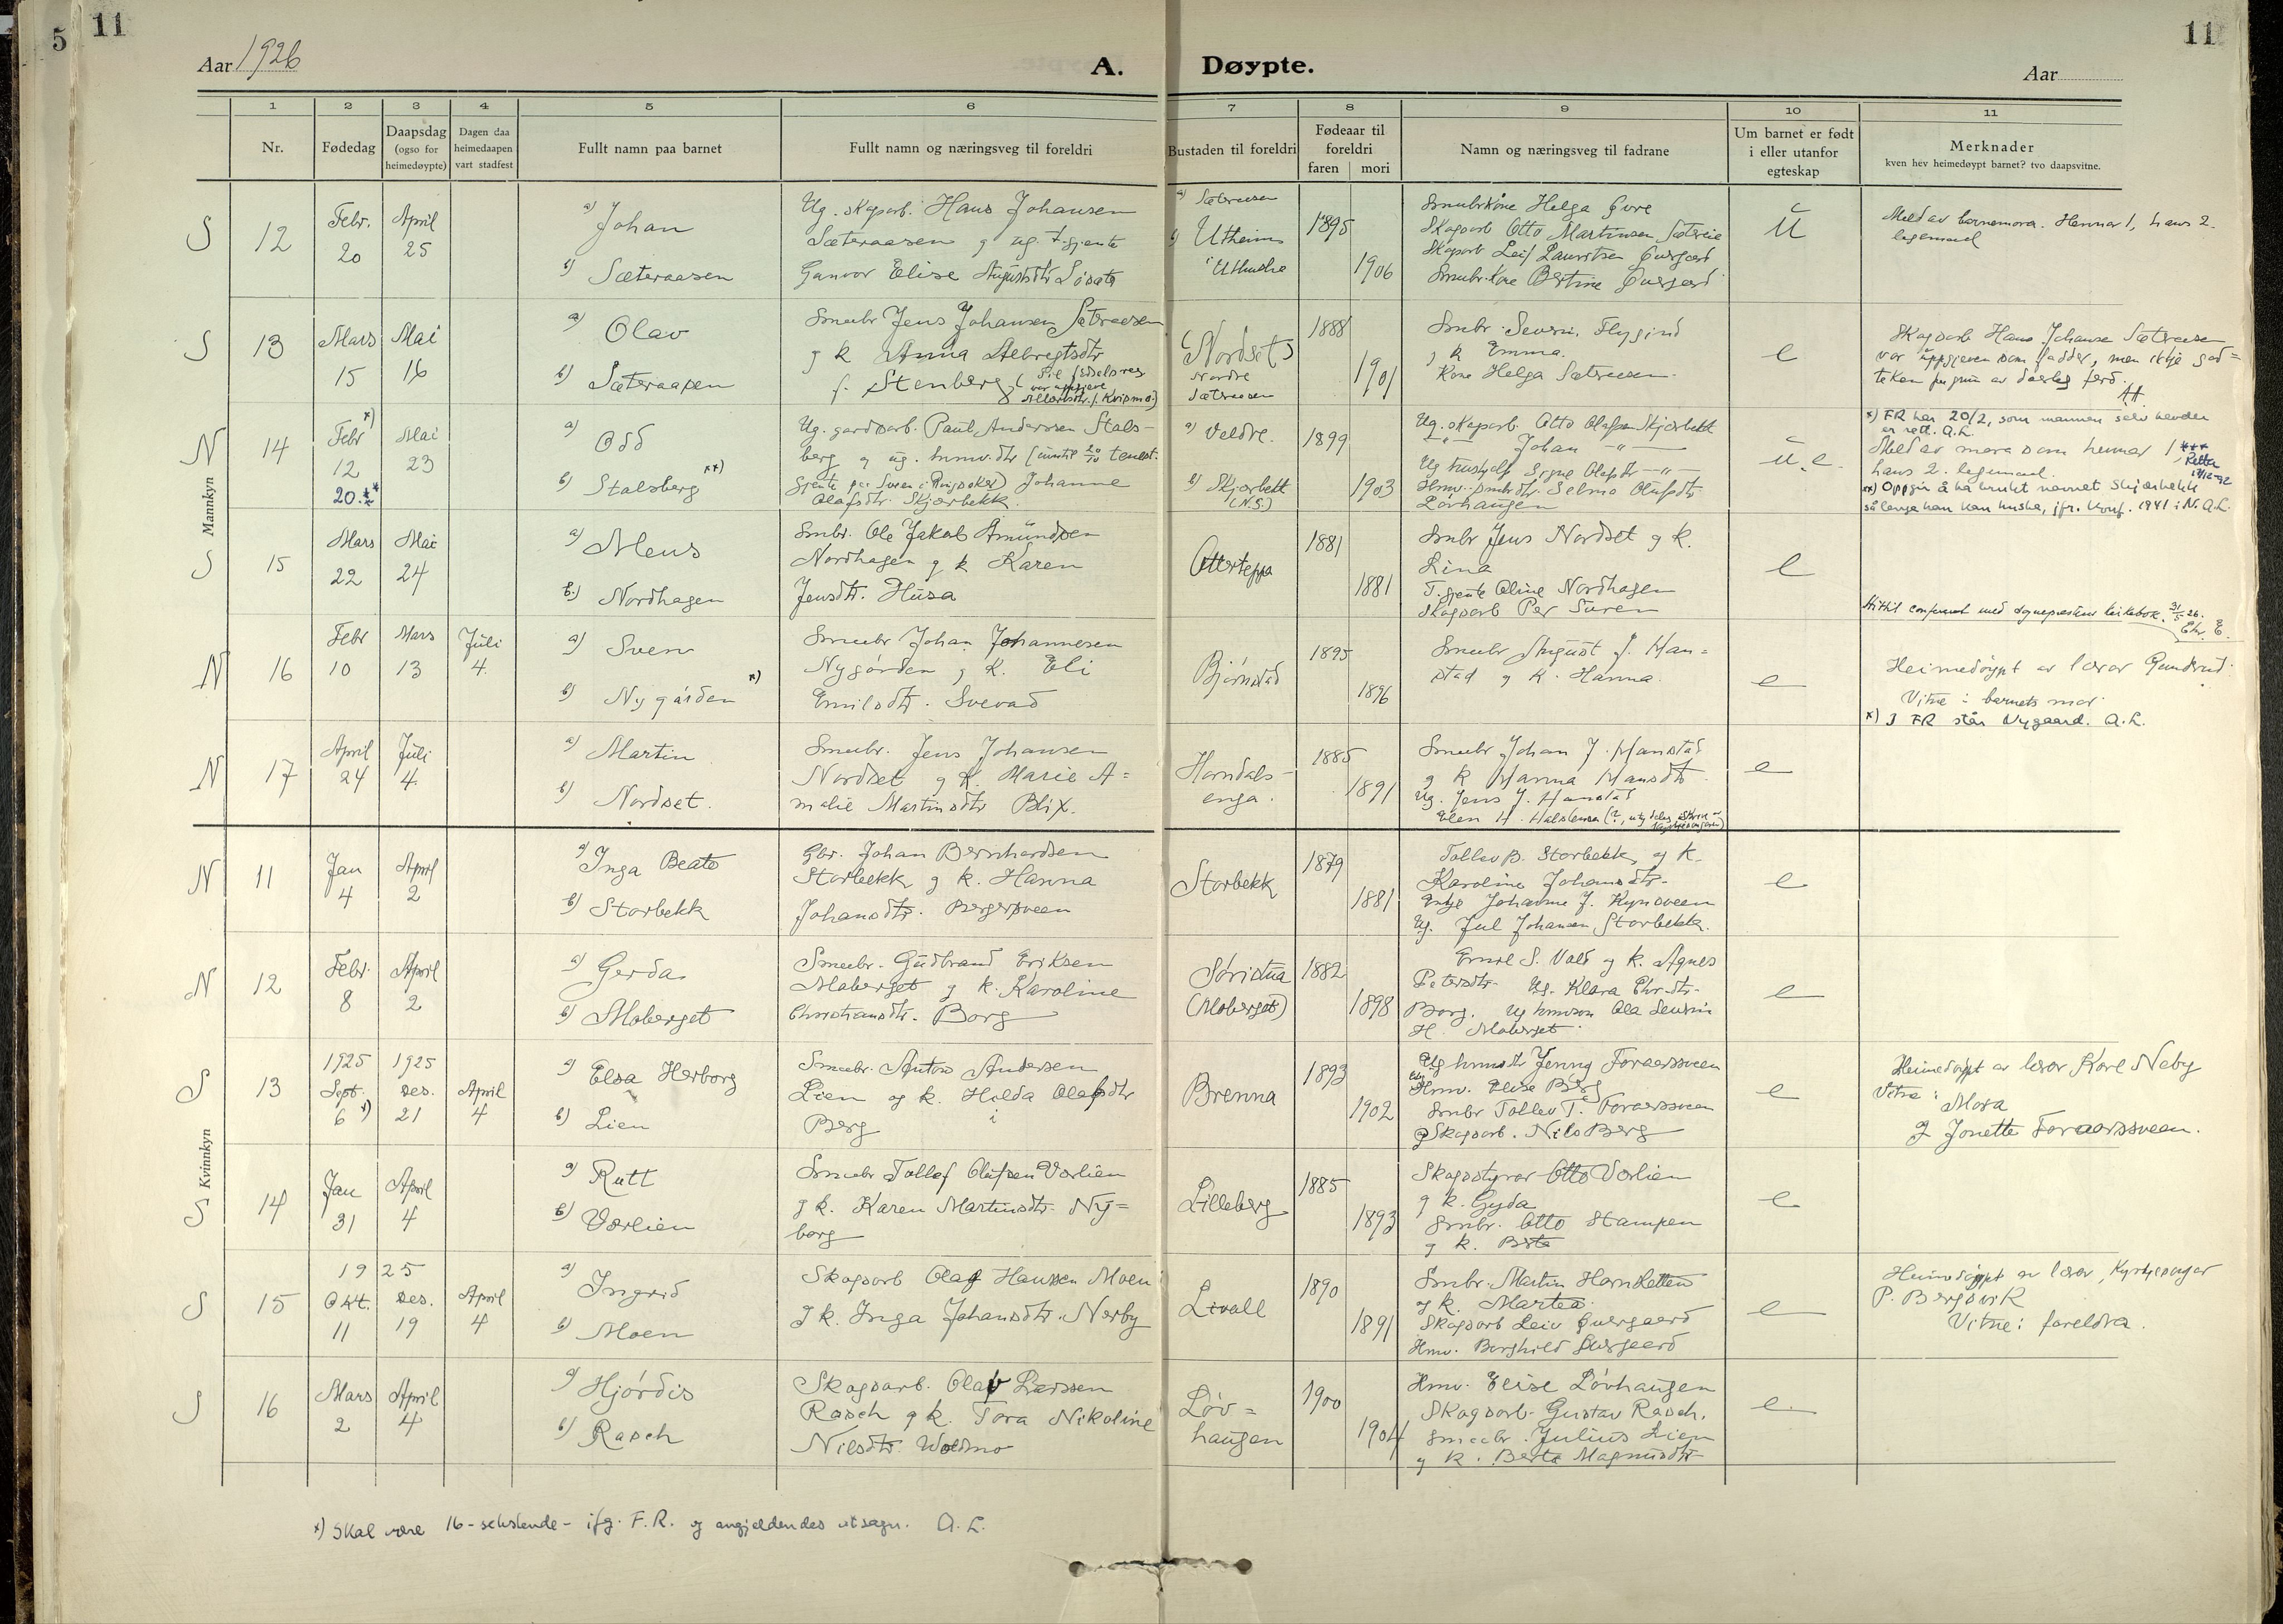 5 11
11
Aar 1926
A. Døypte.
Aar
1 2 3 4 5 6 7 8 9 10 11
Nr.
Fødedag
Daapsdag
(ogso for
heimedøypte)
Dagen daa
heimedaapen
vart stadfest
Fullt namn paa barnet
Fullt namn og næringsveg til foreldri
Bustaden til foreldri
Fødeaar til
foreldri
faren mori
Namn og næringsveg til fadrane
Um barnet er født
i eller utanfor
egteskap
Merknader
kven hev heimedøypt barnet? tvo daapsvitne.
Mannkyn
S 12
Febr. 20
April 25
a) Johan
b) Sæteraasen
Ug. skogarb. Hans Johansen
Sæteraasen g ug. t.gjente
Gunvor Elise Augustdtr
a) Sætreasen
b) Utheim
i Uthuslie
1895
1906
Smubrkone Helga
Skogsarb Otto Martinsen
Skogarb Leif Lauritsen
Smubr.kone Bertine
u
Meld av barnemora. Hennar 1, hans 2.
legemaal
S 13
Mars 15
Mai 16
a) Olav
b) Sæteraasen
Smubr Jens Johansen Sætreasen
g k Anna
f. Stenberg
Nordset
Nordre
Sætreasen
1888
1901
Smbr. Flygind
g k Emma.
Kone Helga Sætreasen
e
Skogsarb Hans Johanse Sætreasen
var uppgjeven som fadder, men ikkje god=
teken
N 14
Febr x)
12
20.
Mai 23
a) Odd
b) Stalsberg xx)
Ug. gardsarb. Paul Anderssen Stals-
berg g ug.
Johanne
Olafsdtr. Skjærbekk
a) Veldre.
b) Skjærbekk
(N.S.)
1899
1903
Ug. skogarb. Otto Olafsen Skjærbekk
Johan
Ug hushjelp Signe Olafsdtr
Selma Olafsdtr
Løvhaugen
u.e.
x) FR har 20/2, som mannen selv hevder
er rett. A.L.
Meld av mora som hennar 1
hans 2. legemaal.
xx) Oppgir å ha brukt navnet Skjærbekk
så lenge han kan huske, jfr. konf. 1941 i N. A.L.
S 15
Mars 22
Mai 24
a) Mens
b.) Nordhagen
Smbr. Ole Jakob Amundsen
Nordhagen g k Karen
Jensdtr. Husa
Otterteppa
1881
1881
Smbr Jens Nordset g k.
Lina
T.gjente Oline Nordhagen
Skogsarb Per Suren
e
Hittil conferert med sogneprestens kirkebok. 31/5 26.
Chr. E.
N 16
Febr 10
Mars 13
Juli 4.
a) Sven
b) Nygården x)
Smubr Johan Johannesen
Nygården g K. Eli
Emilsdtr. Svevad
Bjørnstad
1895
1896
Smubr August J. Han=
stad g K. Hanna.
e
Heimedøypt av lærar Gundrud.
Vitne: barnets mor
x) I FR står Nygaard. A.L.
N 17
April 24
Juli 4.
a) Martin
b) Nordset.
Smubr. Jens Johansen
Nordset g K. Marie A=
malie Martinsdtr Blix.
Horndals-
enga.
1885
1891
Smubr Johan J. Hanstad
g k Hanna Hansdtr
Ug. Jens J. Hanstad
e
Kvinnkyn
N 11
Jan 4
April 2
a) Inga Beate
b) Storbekk
Gbr. Johan Bernhardsen
Storbekk g k. Hanna
Johansdtr. Bergersveen
Storbekk
1879
1881
Tollev B. Storbekk g K.
Karoline Johansdtr-
Enkje Johanne J. Kynsveen
Ug. Jul Johansen Storbekk.
e
N 12
Febr. 8
April 2
a) Gerda
b) Moberget
Smubr. Gudbrand Eriksen
Moberget g k. Karoline
Christiansdtr. Borg
Søristua
(Moberget)
1882
1898
Emil S. Vold g k. Agnes
Petersdtr- Ug. Klara Chr.dtr-
Borg.
H. Moberget
e
S 13
1925
Sept. 6 x)
1925
Des. 21
April 4
a) Elsa Herborg
b) Lien
Smubr. Anton Andersen
Lien og k. Hilda Olafsdtr
Berg
Brenna
1893
1902
Ug Jenny Foraarssveen
Hmv. Elise Berg
Smbr Tollev T. Foraarssveen
g Skogsarb. Nils Berg
e
Heimedøypt av lærar Kåre Neby
Vitne: Mora
g Jonette Foraarssveen.
S 14
Jan 31
April 4
a) Rutt
b) Vorlien
Smubr Tollef Olufsen Vorlien
g k. Karen Martinsdtr. Ny=
borg
Lilleberg
1885
1893
Skogsstyrar Otto Vorlien
g k. Gyda
Smbr. Otto Stampen
g k. Berta
e
S 15
1925
Okt. 11
Des. 19
April 4
a) Ingrid
b) Moen
Skogsarb Olaf Hanssen Moen
g k. Inga Johansdtr. Nerby
Livoll
1890
1891
Smbr. Martin Hornketten
g k. Martea.
Skogsarb Leiv
Hmv. Borghild
e
Heimedøypt av lærar, Kyrkjesongar
P. Bergsvik
Vitne: foreldra.
S 16
Mars 2
April 4
a) Hjørdis
b) Rasch
Skogsarb. Olav Larssen
Rasch g k. Tora Nikoline
Nilsdtr. Woldmo
Løv=
haugen
1900
1904
Hmv. Elise Løvhaugen
Skogsarb. Gustav Rasch.
Smubr. Julius Lien
g k. Berta Magnusdtr
e
x) Skal være 16-sekstende- ifg. F.R. og angjeldendes utsagn. A.L.